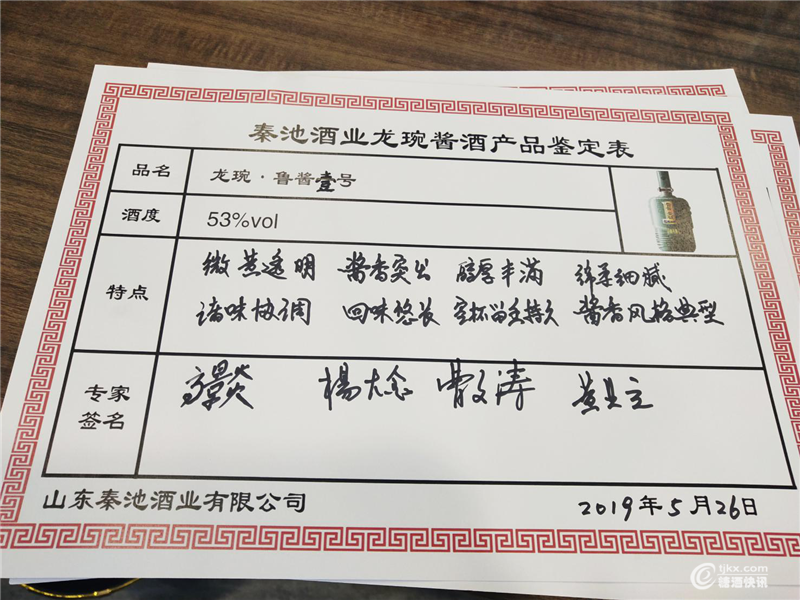 秦池酒业龙琬酱酒产品鉴定表
品名 龙琬·鲁酱壹号
酒度 53%vol
特点 微黄透明 酱香突出 醇厚丰满 绵柔细腻
诸味协调 回味悠长 空杯留香持久 酱香风格典型
专家
签名
山东秦池酒业有限公司 2019年5月26日
tjkx.com
糖酒快讯